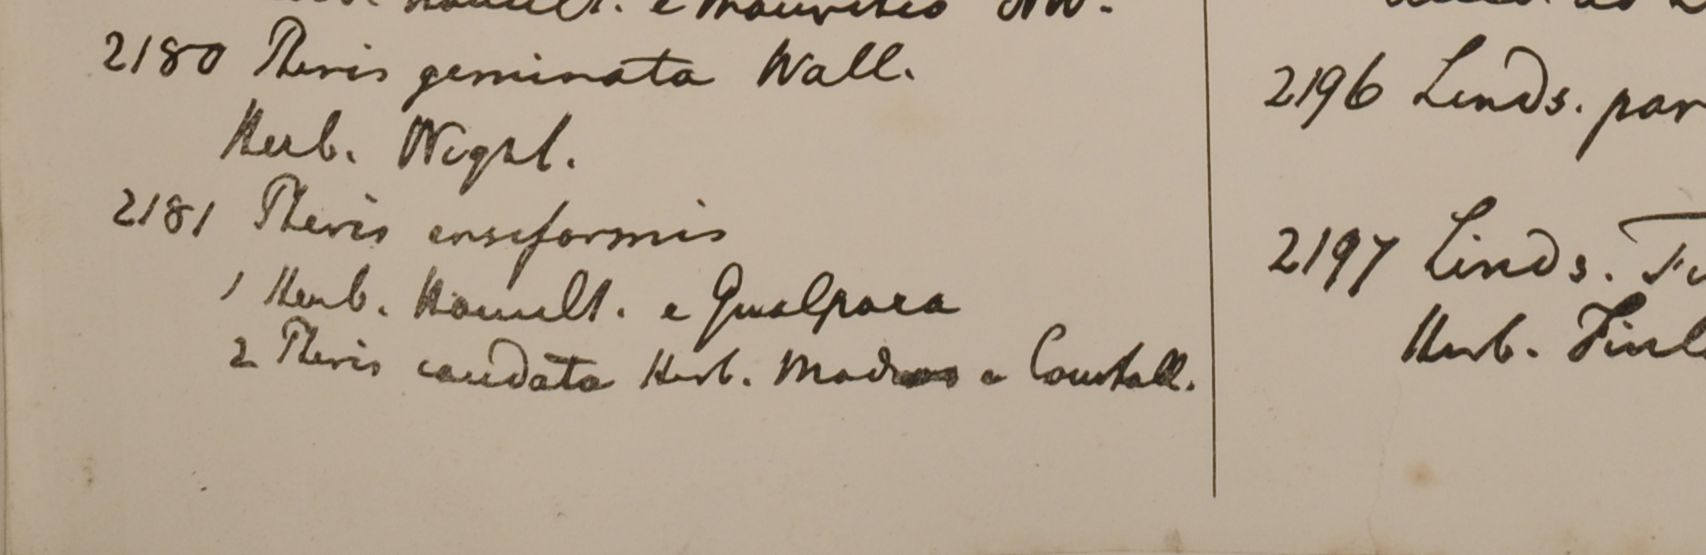 Hamilt. e Mauritio
2180 Pteris geminata Wall.
Herb. Wight.
2181 Pteris ensiformis
1 Herb. Hamilt. e Gualpara
2 Pteris caudata Herb. Madras e Courtall.
2196 Linds. par
2197 Linds.
Herb. Finl